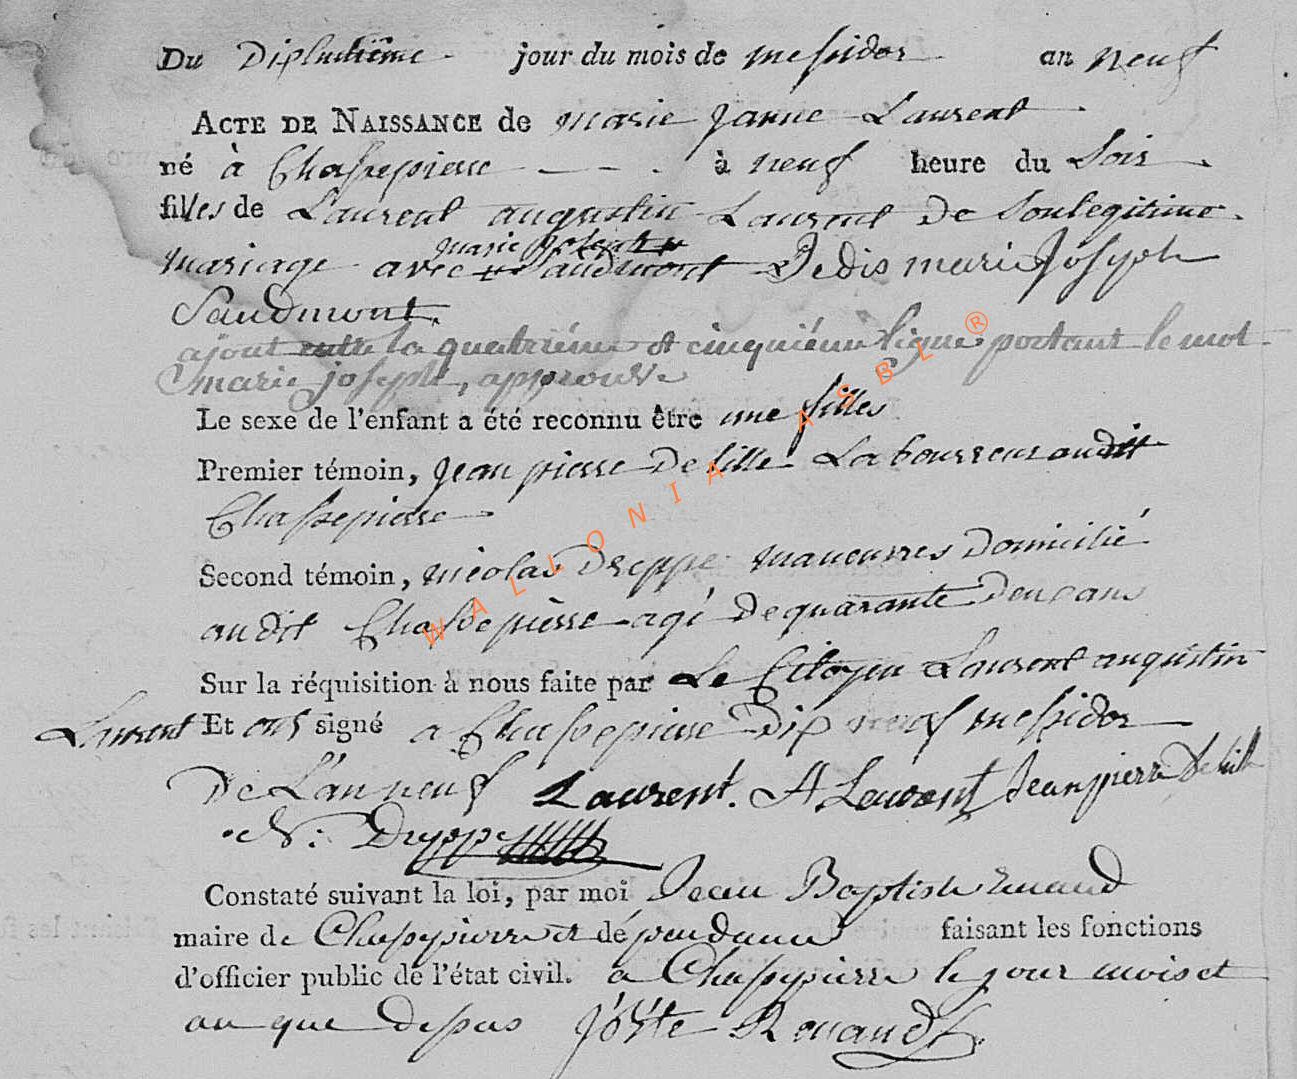 Du Dixhuitième jour du mois de messidor an neuf
ACTE DE NAISSANCE de marie janne Laurent
né à Chassepierre à neuf heure du Soir
filles de Laurent augustin Laurent De Son legitime
marie joseph
mariage avec audmont Je dis marie Joseph
Saudmont.
ajout entre la quatriéme et cinquiéme ligne portant le mot
marie joseph, approuvé
Le sexe de l'enfant a été reconnu être une filles
Premier témoin, Jean pierre De lille Laboureur audit
Chassepierre
Second témoin, nicolas Dreppe manouvres Domicilié
audit Chassepierre agé De quarante Deux ans
Sur la réquisition à nous faite par Le Citoyen Laurent augustin
Laurent Et ons signé a Chassepierre Dix neuf messidor
De L'an neuf Laurent. A Laurent Jean pierre De lille
N: Dreppe
Constaté suivant la loi, par moi Jean Baptiste Renaud
maire de Chassepierre et dépendance faisant les fonctions
d'officier public de l'état civil. a Chassepierre le jour mois et
an que dessus J Bte Renaud
WALLONIA ASBL ®